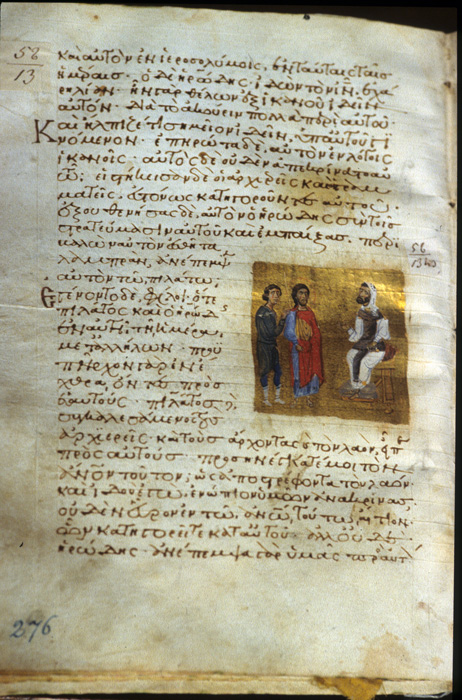 58
13
καὶ αὐτὸν ἐν ἱεροσολύμοις· ἐν ταύταις ταῖς
ἡμέραις· ὁ δὲ ἡρώδης ἰδὼν τὸν ἰν, ἐχά
ρη λίαν· ἦν γὰρ θέλων ἐξ ἱκανοῦ ἰδεῖν
αὐτόν· διὰ τὸ ἀκούειν πολλὰ περὶ αὐτοῦ·
Καὶ ἤλπιζέ τι σημεῖον ἰδεῖν, ὑπ' αὐτοῦ γι
νόμενον· ἐπηρώτα δὲ, αὐτὸν ἐν λόγοις
ἱκανοῖς· αὐτὸς δὲ οὐδὲν ἀπεκρίνατο αὐ
τῶ· εἱστήκεισαν δὲ οἱ ἀρχιερεῖς καὶ οἱ γραμ
ματεῖς, εὐτόνως κατηγοροῦντες αὐτοῦ·
ἐξουθενήσας δὲ, αὐτὸν ὁ ἡρώδης σὺν τοῖς
στρατεύμασιν αὐτοῦ καὶ ἐμπαίξας· περι
βαλὼν αὐτὸν ἐσθῆτα
λαμπρὰν, ἀνέπεμψεν
αὐτὸν τῶ πιλάτω·
Ἐγένοντο δὲ, φίλοι ὅ τε
πιλᾶτος καὶ ὁ ἡρώδης
ἐν αὐτῆ τῆ ἡμέρα,
μετ' ἀλλήλων· προϋ
πῆρχον γὰρ ἐν ἔ
χθρα, ὄντες πρὸς
ἑαυτούς· πιλᾶτος δὲ
συγκαλεσάμενος τοὺς
ἀρχιερεῖς καὶ τοὺς ἄρχοντας καὶ τὸν λαὸν, εἶπε
πρὸς αὐτούς· προσηνέγκατέ μοι τὸν
ἄνον τοῦτον, ὡς ἀποστρέφοντα τὸν λαόν·
καὶ ἰδοὺ ἐγὼ, ἐνώπιον ὑμῶν ἀνακρίνας,
οὐδὲν εὗρον ἐν τῶ ἀνω τούτω, αἴτιον
ὧν κατηγορεῖτε κατ' αὐτοῦ· ἀλλ' οὐδὲ
ἡρώδης· ἀνέπεμψα γὰρ ὑμᾶς πρὸς αὐτ
56
276